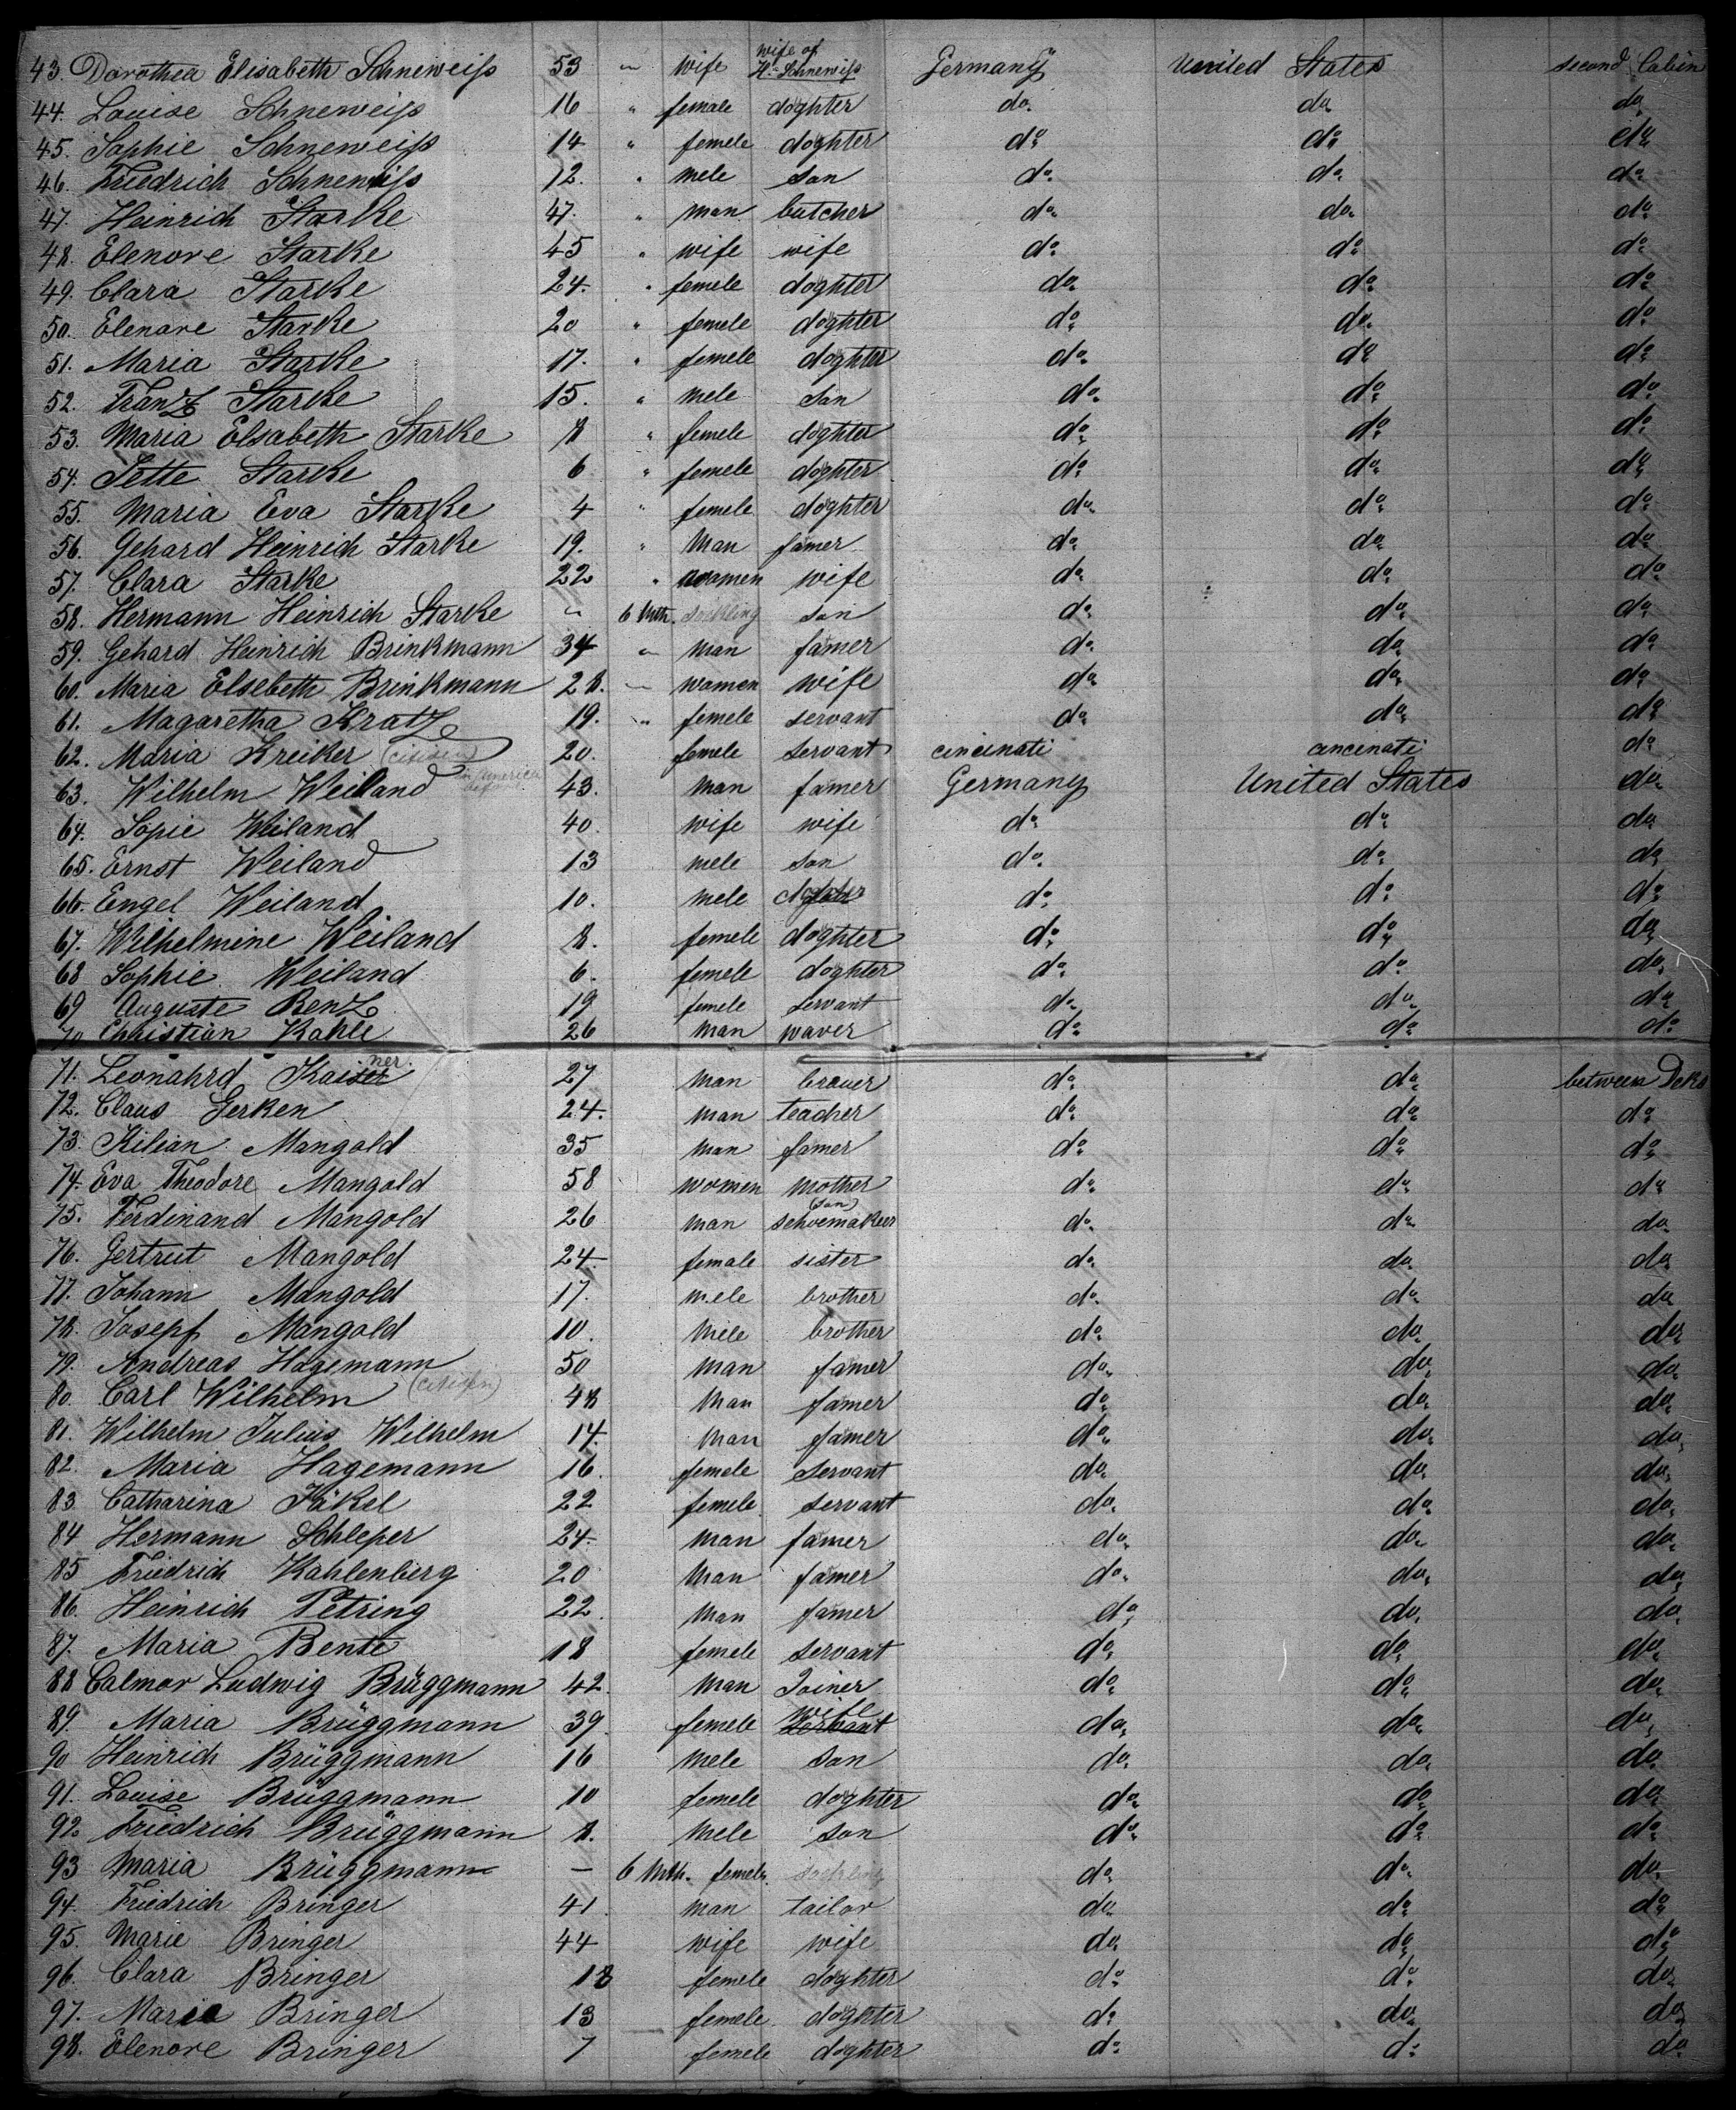 43. Dorothea Elisabeth Schneweiß 53 " wife wife of H. Schneweiß Germany United States second Cabin
44. Louise Schneweiß 16 " female doghter do. do. do.
45. Sophie Schneweiß 14 " femele doghter do. do. do.
46. Friedrich Schneweiß 12. " mele son do. do. do.
47. Heinrich Starke 47. " man butcher do. do. do.
48. Elenore Starke 45 " wife wife do. do. do.
49. Clara Starke 24. " femele doghter do. do. do.
50. Elenore Starke 20 " femele doghter do. do. do.
51. Maria Starke 17. " femele doghter do. do. do.
52. Franz Starke 15. " mele son do. do. do.
53. Maria Elsabeth Starke 8 " femele doghter do. do. do.
54. Jette Starke 6 " femele doghter do. do. do.
55. Maria Eva Starke 4 " femele doghter do. do. do.
56. Gehard Heinrich Starke 19. " Man famer do. do. do.
57. Clara Starke 22 " women wife do. do. do.
58. Hermann Heinrich Starke " 6 Mth. sockling son do. do. do.
59. Gehard Heinrich Brinkmann 34 " man famer do. do. do.
60. Maria Elsebeth Brinkmann 28. " women wife do. do. do.
61. Magaretha Kratz 19. " femele servant do. do. do.
62. Maria Kreiker (citizen) 20. female servant cincinati cincinati do.
63. Wilhelm Weiland in America before 43. man famer Germany United States do.
64. Sopie Weiland 40. wife wife do. do. do.
65. Ernst Weiland 13 mele son do. do. do.
66. Engel Weiland 10. mele do. do. do.
67. Wilhelmine Weiland 8. femele doghter do. do. do.
68 Sophie Weiland 6. femele doghter do. do. do.
69 Auguste Benz 19 femele servant do. do. do.
70 Christian Kahle 26 man waver do. do. do.
71. Leonahrd Kaisner 27 man brauer do. do. between Deks
72. Claus Gerken 24. man teacher do. do. do.
73. Kilian Mangold 35 man famer do. do. do.
74. Eva Theodore Mangold 58 women mother do. do. do.
75. Ferdinand Mangold 26 man (son) schoemakeer do. do. do.
76. Gertrut Mangold 24. female sister do. do. do.
77. Johann Mangold 17. mele brother do. do. do.
78. Josepf Mangold 10. mele brother do. do. do.
79. Andreas Hagemann 50 man famer do. do. do.
80. Carl Wilhelm (citizen) 48 Man famer do. do. do.
81. Wilhelm Julius Wilhelm 14. man famer do. do. do.
82. Maria Hagemann 16. femele servant do. do. do.
83 Catharina Jäkel 22 femele servant do. do. do.
84 Hermann Schleper 24. man famer do. do. do.
85 Friedrich Kahlenberg 20 man famer do. do. do.
86. Heinrich Petring 22. man famer do. do. do.
87. Maria Bente 18 femele servant do. do. do.
88 Calmor Ludwig Brüggmann 42. man Joiner do. do. do.
89. Maria Brüggmann 39. femele wife servant do. do. do.
90 Heinrich Brüggmann 16 mele son do. do. do.
91. Louise Brüggmann 10 femele doghter do. do. do.
92. Friedrich Brüggmann 8. mele son do. do. do.
93 Maria Brüggmann — 6 Mth. femele sockling do. do. do.
94. Friedrich Bringer 41. man tailor do. do. do.
95. Marie Bringer 44 wife wife do. do. do.
96. Clara Bringer 18 femele doghter do. do. do.
97. Maria Bringer 13 femele doghter do. do. do.
98. Elenore Bringer 7 femele doghter do. do. do.